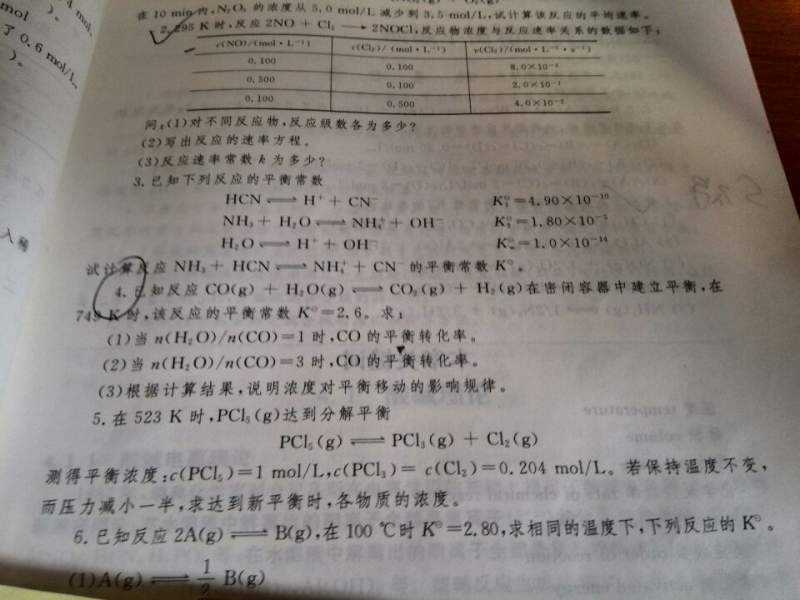 mol
)。
4 mol,
了0.6 mol/L,
)。
在 10 min 内,N₂O₅ 的浓度从 5.0 mol/L 减少到 3.5 mol/L,试计算该反应的平均速率。
2. 295 K 时,反应 2NO + Cl₂ ⟶ 2NOCl,反应物浓度与反应速率关系的数据如下:
c(NO)/(mol·L⁻¹) c(Cl₂)/(mol·L⁻¹) v(Cl₂)/(mol·L⁻¹·s⁻¹)
0.100 0.100 8.0×10⁻³
0.500 0.100 2.0×10⁻¹
0.100 0.500 4.0×10⁻²
问:(1)对不同反应物,反应级数各为多少?
(2)写出反应的速率方程。
(3)反应速率常数 k 为多少?
3. 已知下列反应的平衡常数
HCN ⇌ H⁺ + CN⁻ K₁°=4.90×10⁻¹⁰
NH₃ + H₂O ⇌ NH₄⁺ + OH⁻ K₂°=1.80×10⁻⁵
H₂O ⇌ H⁺ + OH⁻ Kw°=1.0×10⁻¹⁴
试计算反应 NH₃ + HCN ⇌ NH₄⁺ + CN⁻ 的平衡常数 K°。
4. 已知反应 CO(g) + H₂O(g) ⇌ CO₂(g) + H₂(g)在密闭容器中建立平衡,在
749 K 时,该反应的平衡常数 K°=2.6。求:
(1)当 n(H₂O)/n(CO)=1 时,CO 的平衡转化率。
(2)当 n(H₂O)/n(CO)=3 时,CO 的平衡转化率。
(3)根据计算结果,说明浓度对平衡移动的影响规律。
5. 在 523 K 时,PCl₅(g)达到分解平衡
PCl₅(g) ⇌ PCl₃(g) + Cl₂(g)
测得平衡浓度:c(PCl₅)=1 mol/L,c(PCl₃)= c(Cl₂)=0.204 mol/L。若保持温度不变,
而压力减小一半,求达到新平衡时,各物质的浓度。
6. 已知反应 2A(g) ⇌ B(g),在 100 ℃时 K°=2.80,求相同的温度下,下列反应的 K°。
(1)A(g) ⇌ 1/2 B(g)